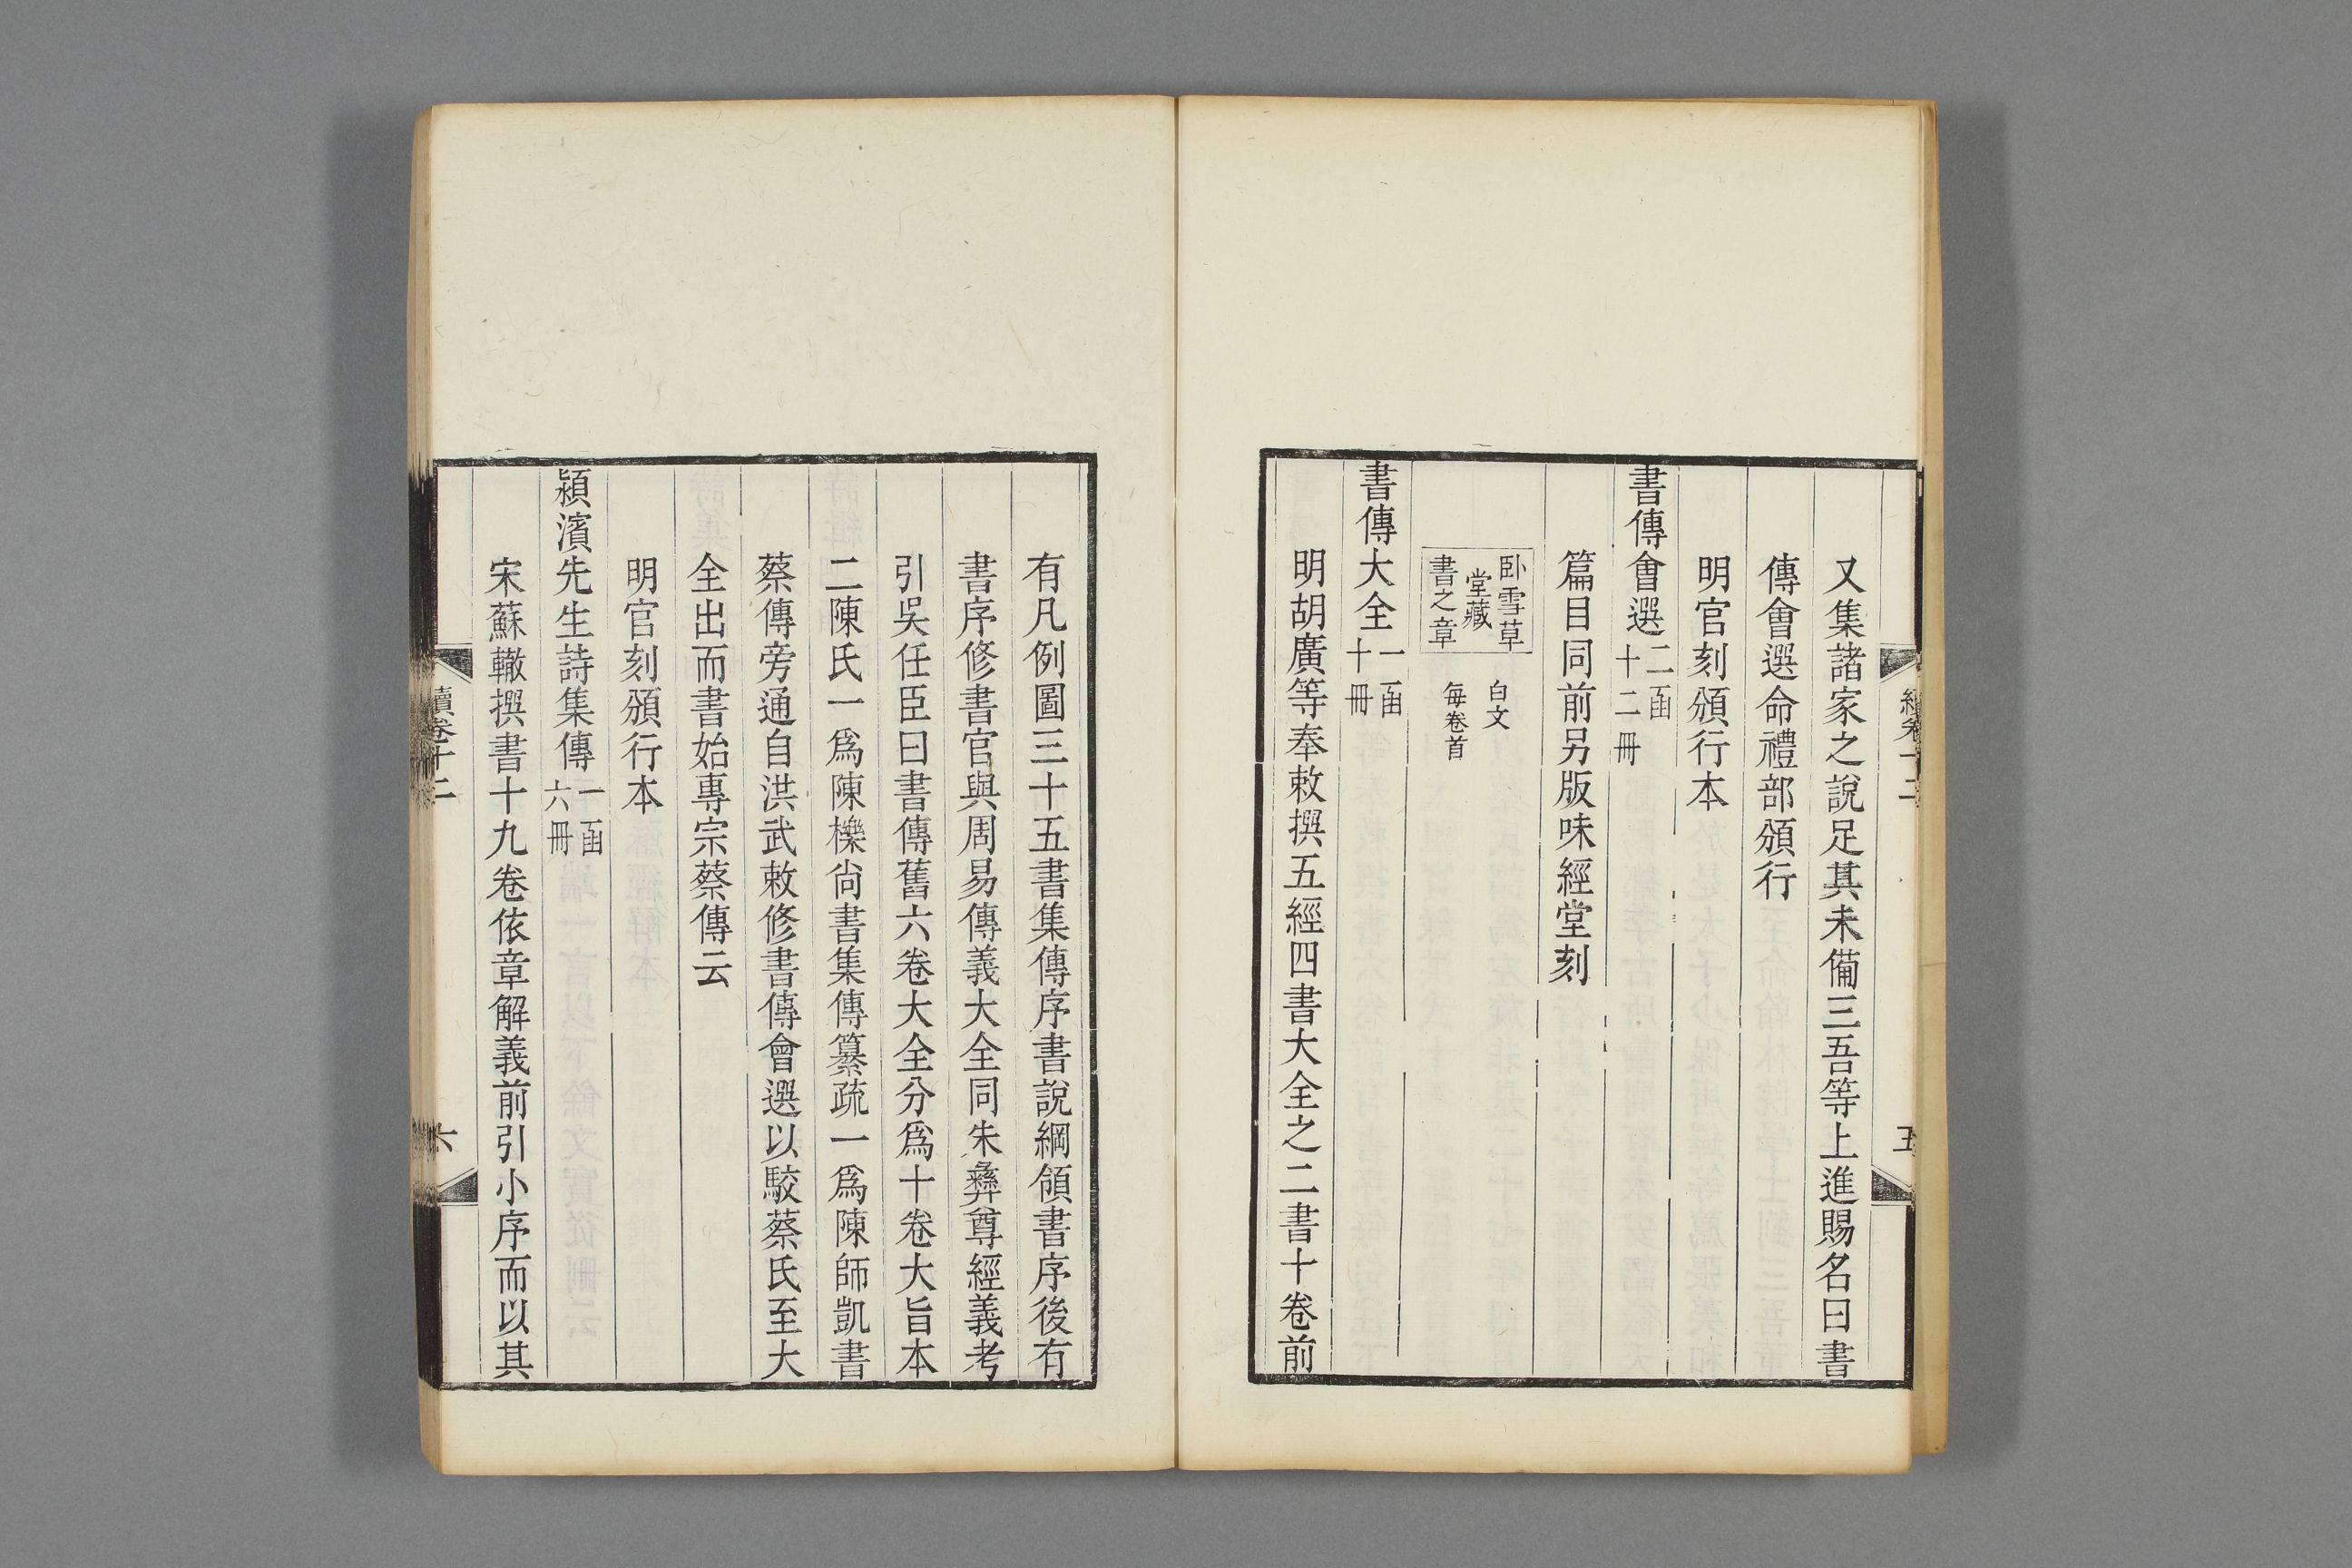 又集諸家之說足其未備三吾等上進賜名曰書
傳會選命禮部頒行
明官刻頒行本
書傳會選二函十二冊
篇目同前另版味經堂刻
卧雪草堂藏書之章 白文 每卷首
書傳大全一函十冊
明胡廣等奉敕撰五經四書大全之二書十卷前
有凡例圖三十五書集傳序書說綱領書序後有
書序修書官與周易傳義大全同朱彝尊經義考
引吳任臣曰書傳舊六卷大全分爲十卷大旨本
二陳氏一爲陳櫟尙書集傳纂疏一爲陳師凱書
蔡傳旁通自洪武敕修書傳會選以駮蔡氏至大
全出而書始專宗蔡傳云
明官刻頒行本
潁濱先生詩集傳一函六冊
宋蘇轍撰書十九卷依章解義前引小序而以其
續卷十二
六